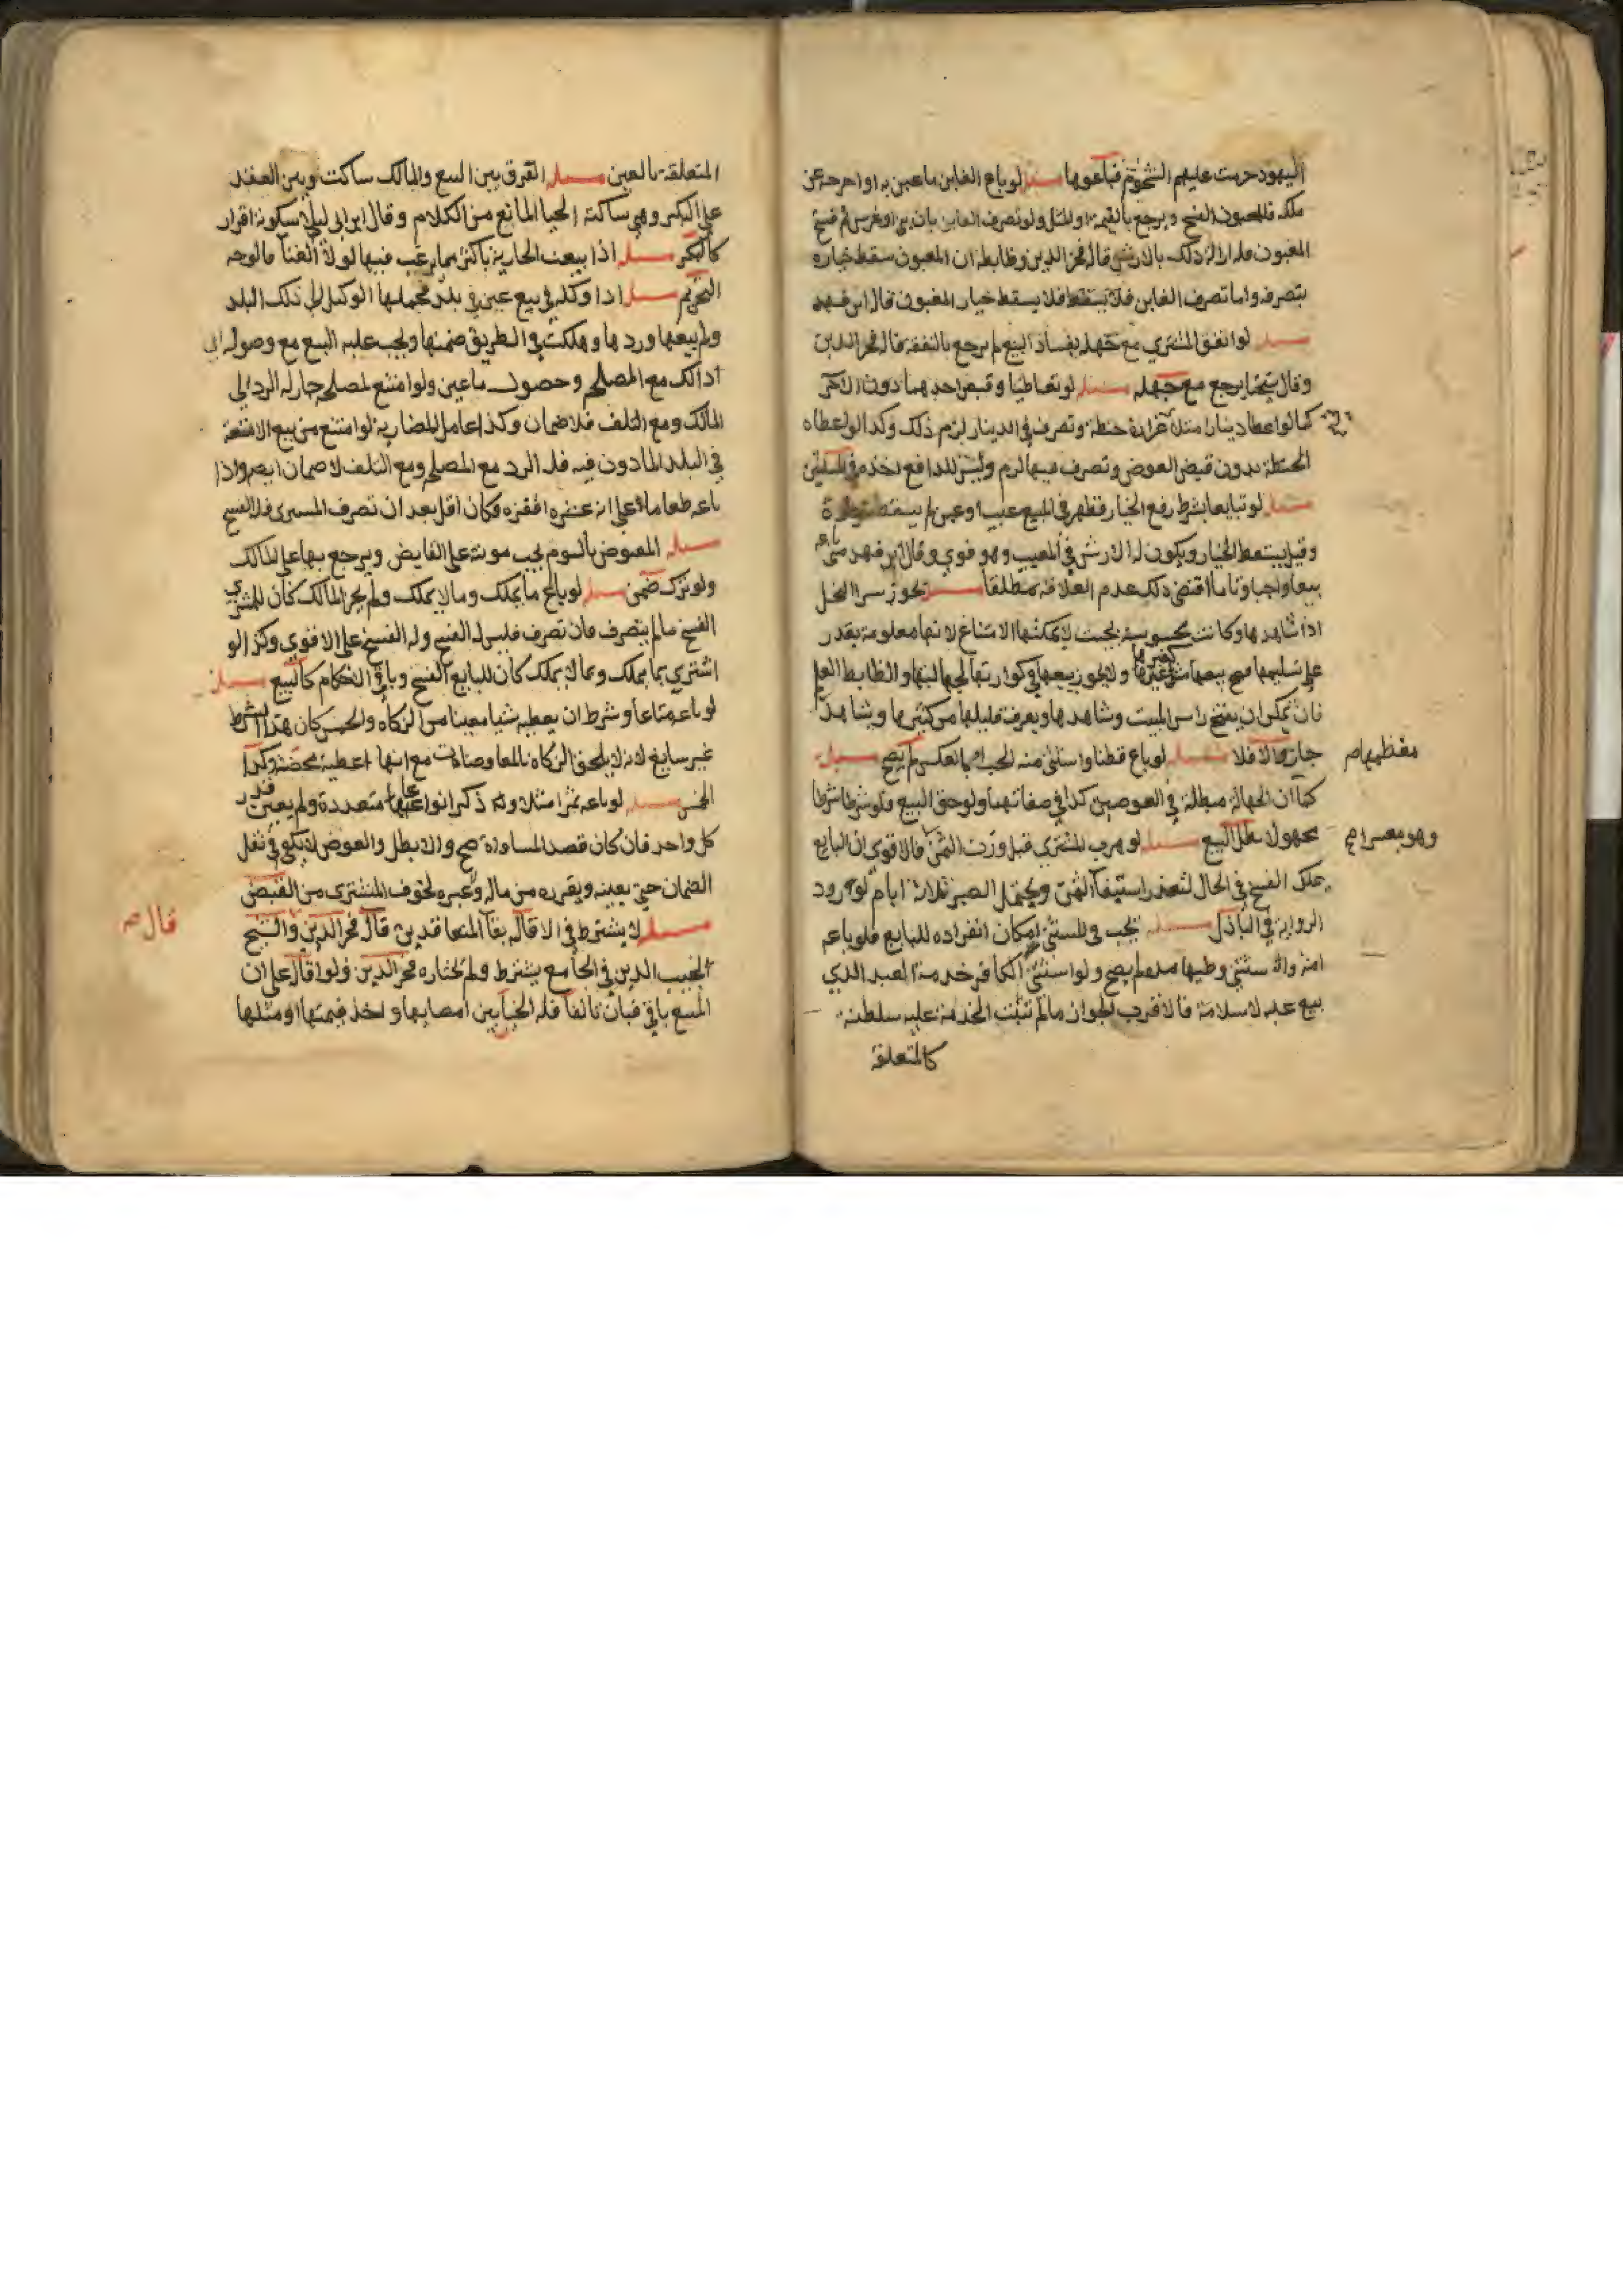 اليهود حرمت عليهم الشحوم فباعوها مسئلة لو باع الغابن ما غبن به او اخرجه عن
ملكه فللمغبون الفسخ و يرجع بالقيمة او المثل ولو تصرف الغابن بان بني او غرس ثم فسخ
المغبون فله ازالة ذلك بالارش قاله فخر الدين وظابطه ان المغبون سقط خياره
بتصرفه واما تصرف الغابن فلا يسقط فلا يسقط خيار المغبون قال ابن فهد
مسئلة لو انفق المشتري مع جهله بفساد البيع لم يرجع بالنفقة قاله فخر الدين
وقال شيخنا يرجع مع جهله مسئلة لو تعاطيا وقبض احدهما دون الاخر
كما لو اعطاه دينارا مثلا حنطة وتصرف في الدينار لزم ذلك وكذا لو اعطاه
الحنطة بدون قبض العوض وتصرف فيها لزم وليس للدافع اخذه في المسئلتين
مسئلة لو تبايعا بشرط رفع الخيار فظهر في المبيع عيب او غبن لم يسقط
وقيل يسقط الخيار ويكون له الارش في المعيب وهو قوي وقال ابن فهد متى
بيعا واجبا وتاما اقتضى ذلك عدم العلاقة مطلقا مسئلة يجوز سرا النحل
اذا شاهدها وكانت محبوسة بحيث لا يمكنها الامتناع لانها معلومة يقدر
على تسليمها فصح بيعها ولا يجوز بيعها في كوارتها لجهالتها و الظابط العلم
فان يمكن ان يفتح راس البيت وشاهدها ويعرف قليلها من كثيرها وشاهد
معظمها صح
جاز والا فلا مسئلة لو باع قطنا واستثنى منه الحب او بالعكس لم يصح مسئلة
كما ان الجهالة مبطلة في العوضين كذا في صفاتهما ولوحق البيع فلو شرطا شرطا
مجهولا بطل البيع مسئلة لو هرب المشتري قبل وزن الثمن فالاقوى ان البايع
يملك الفسخ في الحال لتعذر استيفا الثمن ويحتمل الصبر ثلاثة ايام لورود
الرواية في الباذل مسئلة يجب في المستثنى امكان انفراده للبايع فلو باعه
امة واستثنى وطيها مدة لم يصح ولو استثنى الكافر خدمة العبد الذي
بيع عليه لاسلامه فالاقرب الجواز ما لم تثبت الخدمة عليه سلطنة
كالمتعلقة
المتعلقة بالعين مسئلة الفرق بين البيع والمالك ساكت وبين العقد
على البكر وهي ساكتة الحيا المانع من الكلام وقال ابن ابي ليلى سكوته اقرار
كالبكر مسئلة اذا بيعت الجارية باكثر مما يرغب فيها لولا الغنا فالوجه
التحريم مسئلة اذا وكله في بيع عين في بلد فحملها الوكيل الى ذلك البلد
ولم يبعها وردها وهلكت في الطريق ضمنها ويجب عليه البيع مع وصوله الى
ذلك مع المصلحة وحصول ما عين ولو امتنع لمصلحة جاز له الرد الى
المالك ومع التلف فلا ضمان وكذا عامل المضاربة لو امتنع من بيع الامتعة
في البلد الماذون فيه فله الرد مع المصلحة ومع التلف لا ضمان ايضا واذا
باعه طعاما على انه عشرة اقفزة فكان اقل بعد ان تصرف المشتري فله الفسخ
مسئلة المقبوض بالسوم يجب مونته على القابض ويرجع بها على المالك
ولو ترك ضمن مسئلة لو باع ما يملك وما لا يملك ولم يجز المالك كان للمشتري
الفسخ ما لم يتصرف فان تصرف فليس له الفسخ وله الفسخ على الاقوى وكذا لو
اشترى بما يملك وبما لا يملك كان للبايع الفسخ وباقي الاحكام كالبيع مسئلة
لو باعه متاعا وشرط ان يعطيه شيا معينا من الزكاة والخمس كان هذا الشرط
غير سايغ لانه لا يلحق الزكاة بالمعاوضات مع انها اعطية محضة وكذا
الخمس مسئلة لو باعه بثمن مثلا وقد ذكر انواعا متعددة ولم يعين قدر
كل واحد فان كان قصد المساواة صح والا بطل والعوض لا يكفي في نقل
الضمان حتى يعينه ويفرزه من ماله وغيره لخوف المشتري من القبض
مسئلة لا يشترط في الاقالة بقا المتعاقدين قال فخر الدين والشيخ
قال صح
نجيب الدين في الجامع يشترط ولم يختاره فخر الدين ولو اقال على ان
المبيع باقي فبان تالفا فله الخيار بين امضايها واخذ قيمتها او مثلها